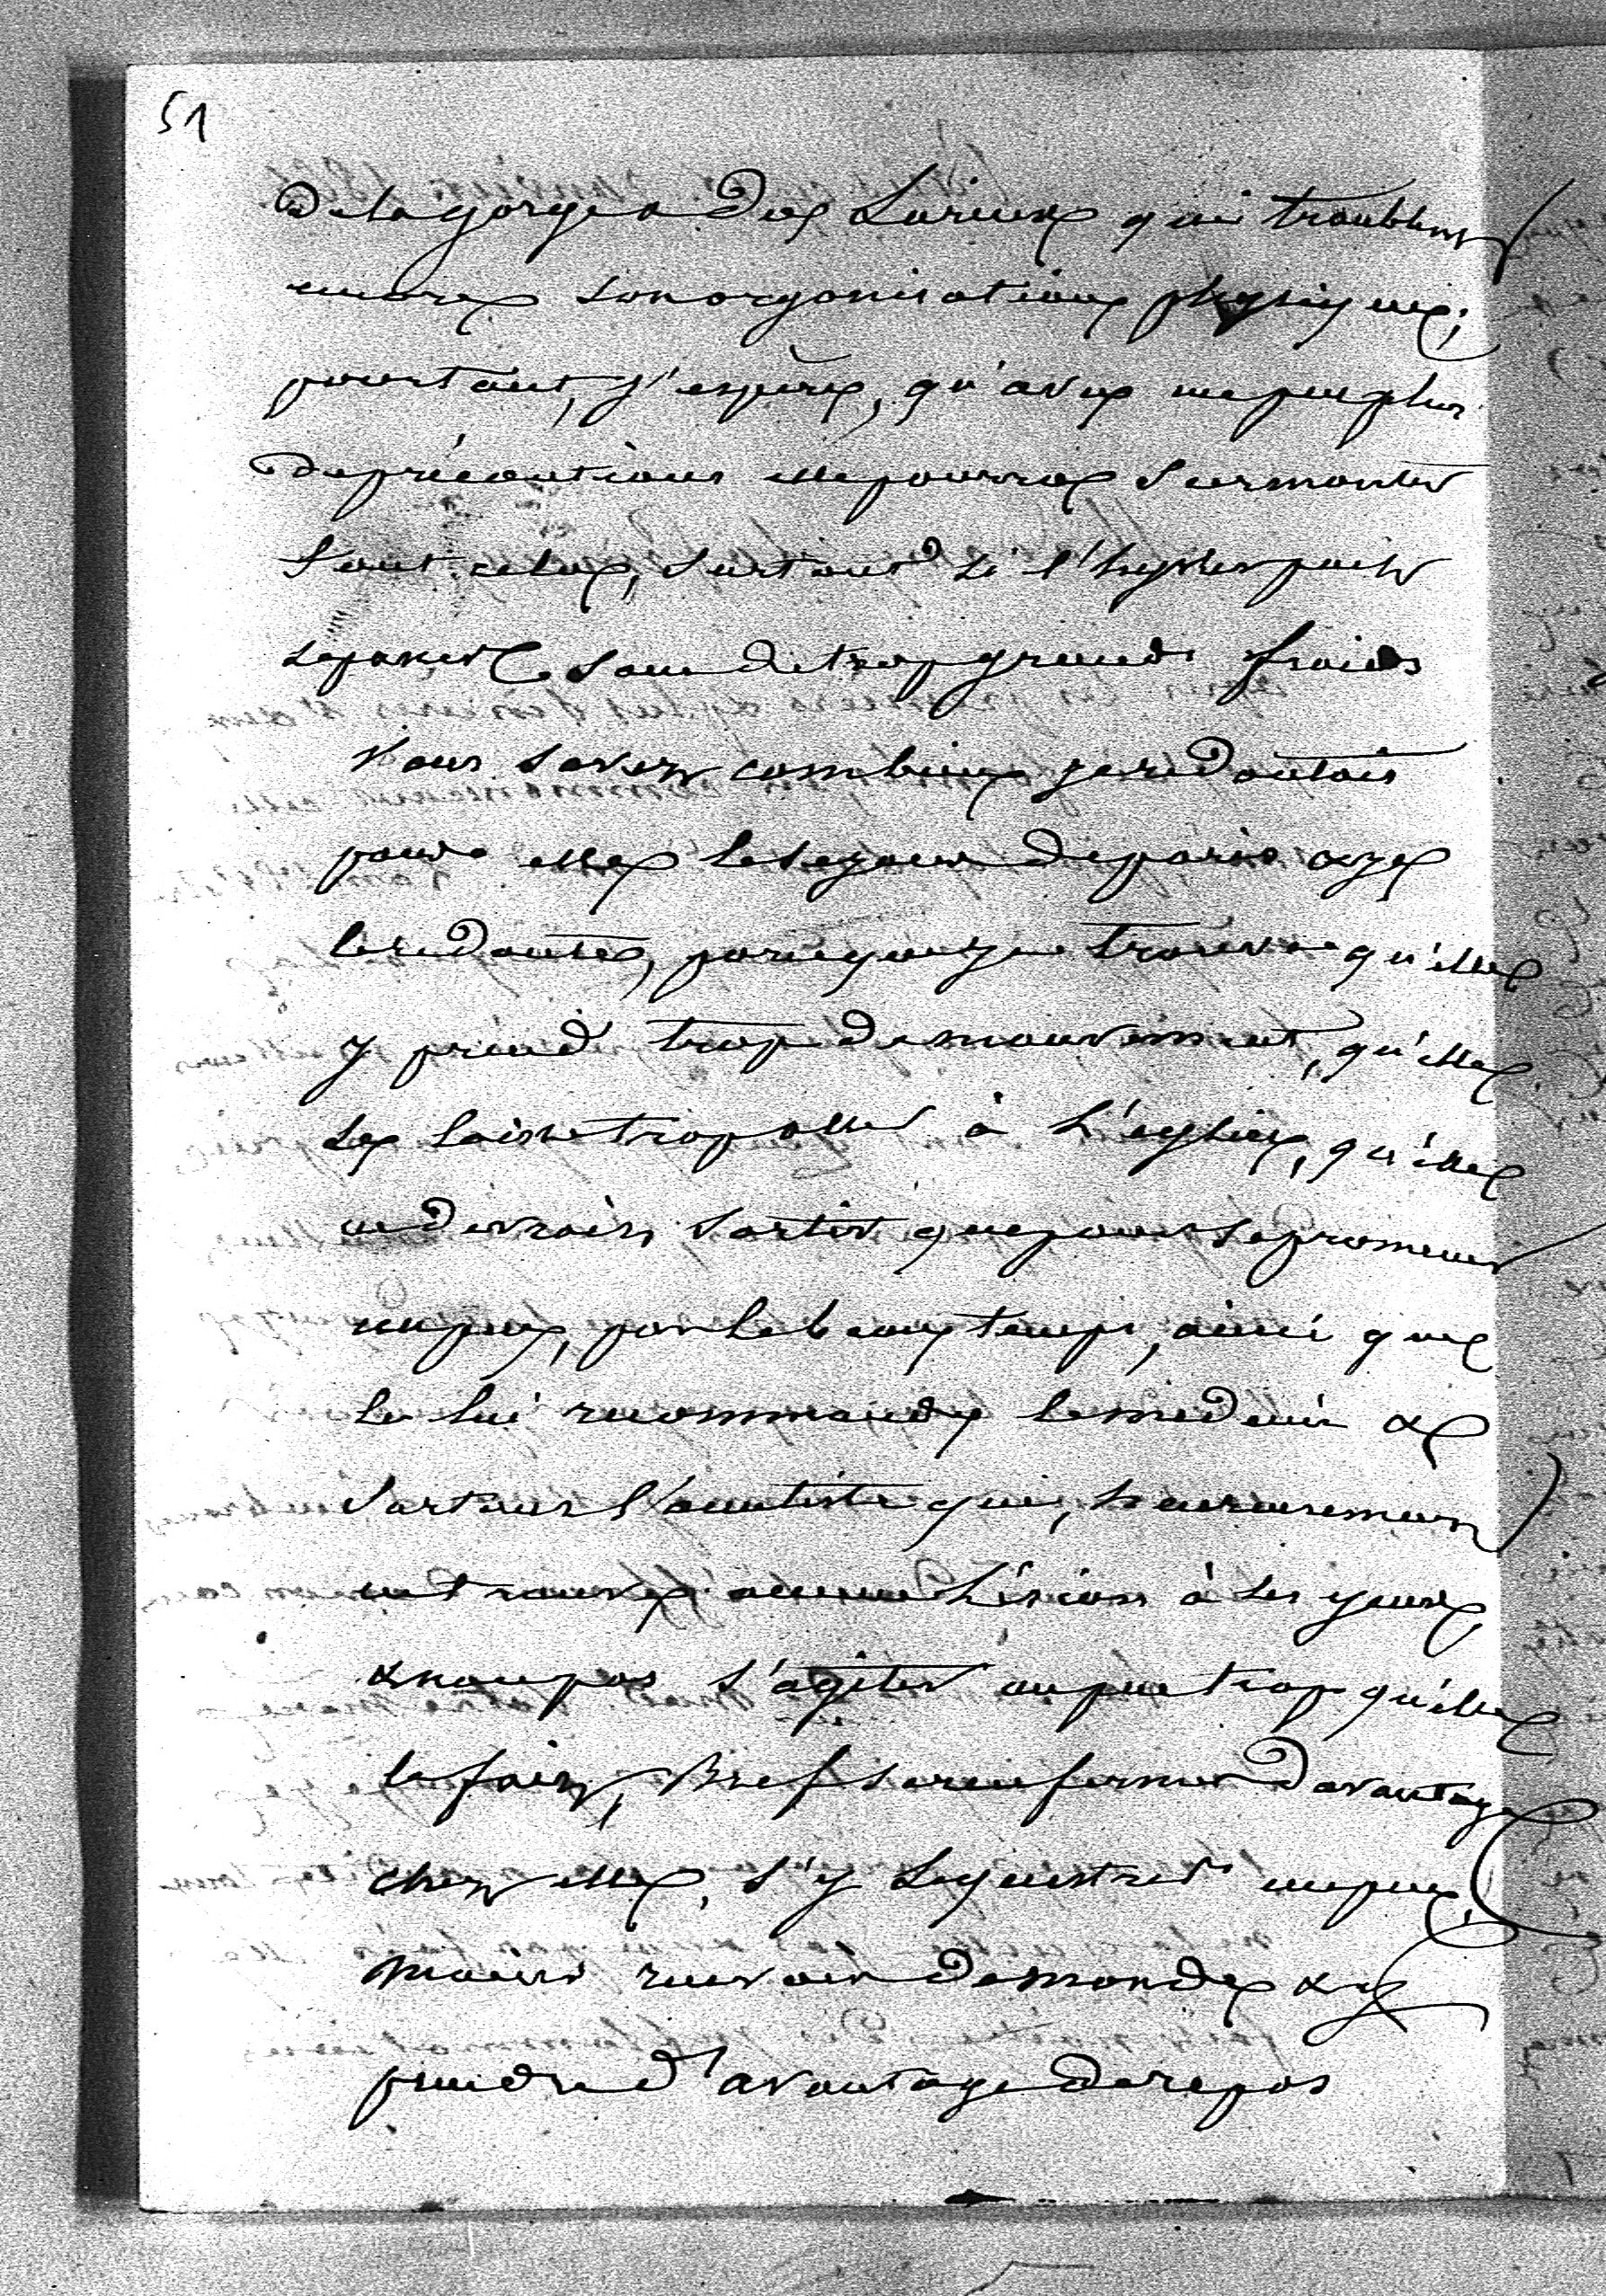 51
de la gorge & du Larinx qui troublent
encore son organisation physique;
pourtant, j'espère, qu'avec un peu plus
de précautions elle pourra surmonter
tout cela, surtout si l'hyver peut
se passer sans de trop grands froids
Vous savez combien je redoutais
pour elle le sejour de paris & je
le redoute, parceque je trouve qu'elle
y prend trop de mouvement, qu'elle
se laisse trop aller à l'église, qu'elle
ne devrait sortir que pour se promener
un peu, par le beau temps, ainsi que
le lui recommande le medecin &
surtout l'oculiste qui, heureusement
ne trouve aucune Lésion à ses yeux,
& non pas s'agiter un peu trop qu'elle
le fait, Bref se renfermer davantage
chez elle, s'y sequestrer un peu,
moins recevoir de monde & y
prendre d'avantage de repos